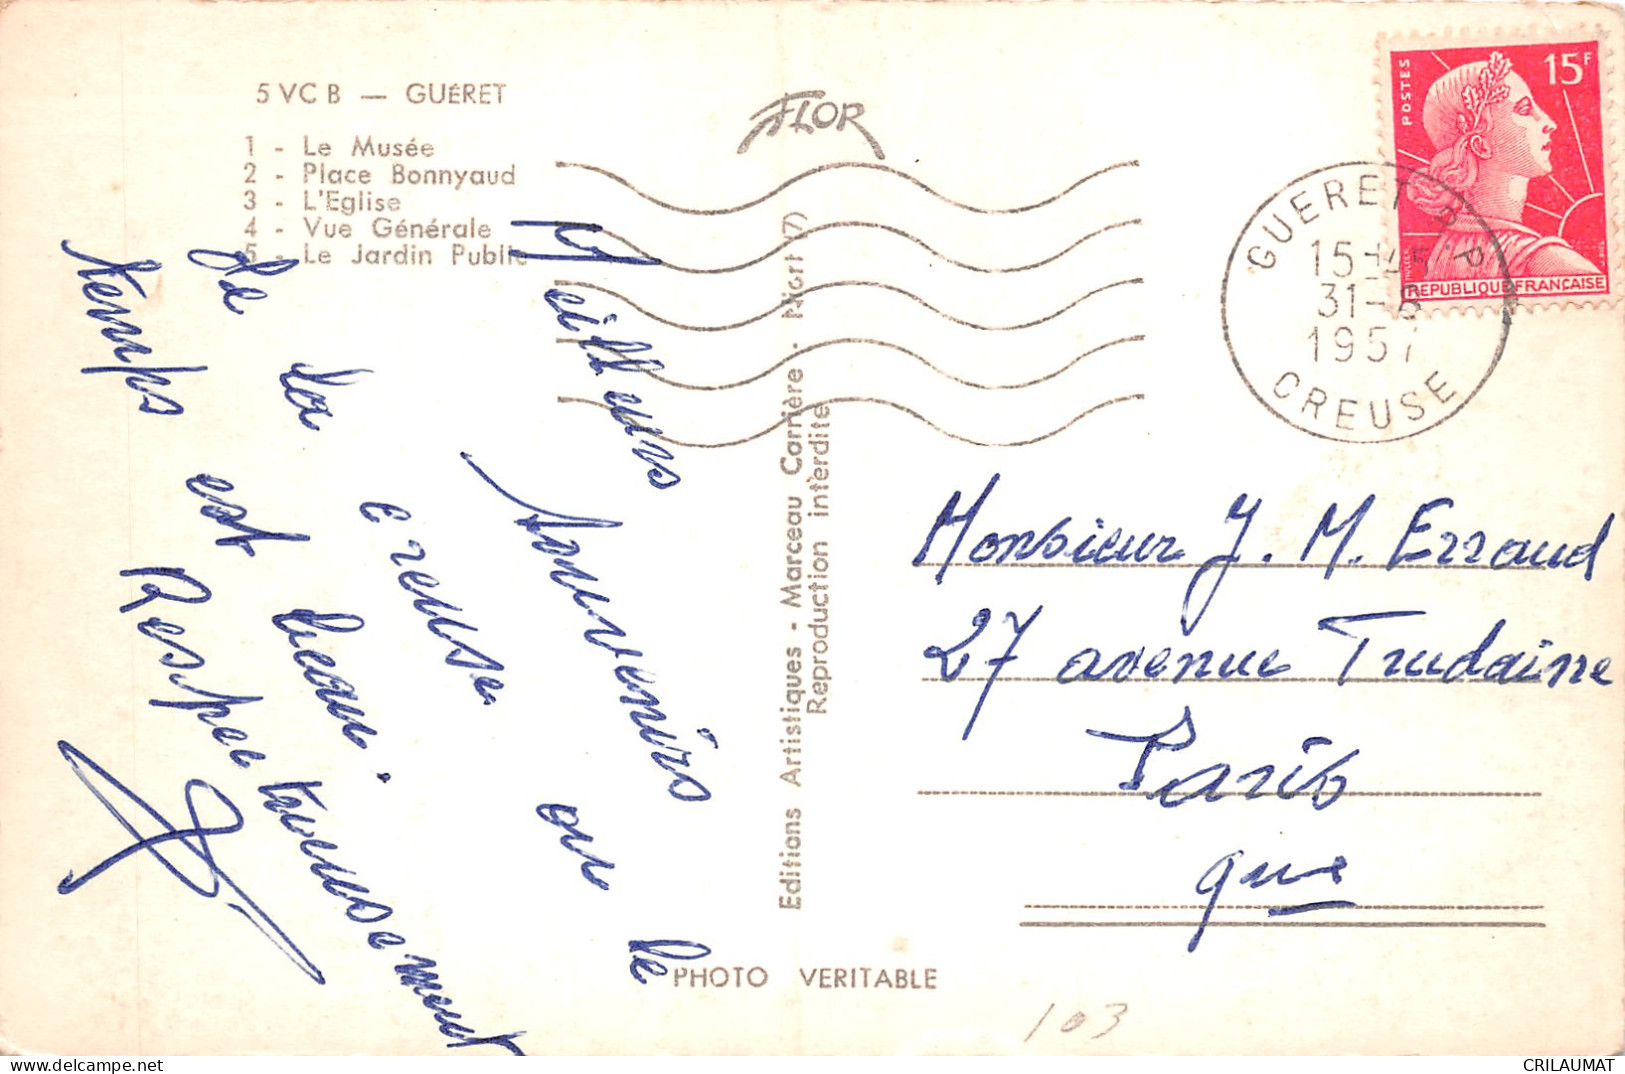 5 VC B — GUÉRET
1 - Le Musée
2 - Place Bonnyaud
3 - L'Eglise
4 - Vue Générale
5 - Le Jardin Public
FLOR
Meilleurs
souvenirs
de la creuse ou le
temps est beau.
Respectueusement
Editions Artistiques - Marceau Carrière - Niort (7)
Reproduction interdite
PHOTO VERITABLE
POSTES
15F
REPUBLIQUE FRANÇAISE
GUERET R.P.
15H45
31-8
1957
CREUSE
Monsieur J. M. Erraud
27 avenue Trudaine
Paris
9me
103
CRILAUMAT